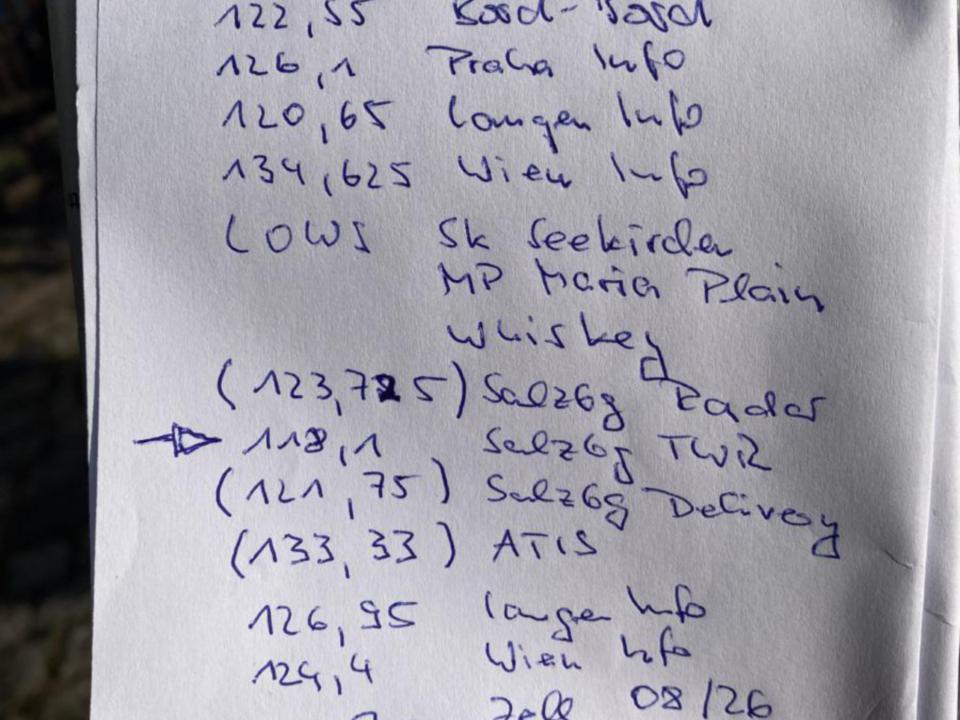 122,55 Bord-Bord
126,1 Praha Info
120,65 Langen Info
134,625 Wien Info
LOWS SK Seekirchen
MP Maria Plain
Whiskey
(123,725) Salzbg Radar
118,1 Salzbg TWR
(121,75) Salzbg Delivery
(133,33) ATIS
126,95 Langen Info
124,4 Wien Info
Zell 08/26